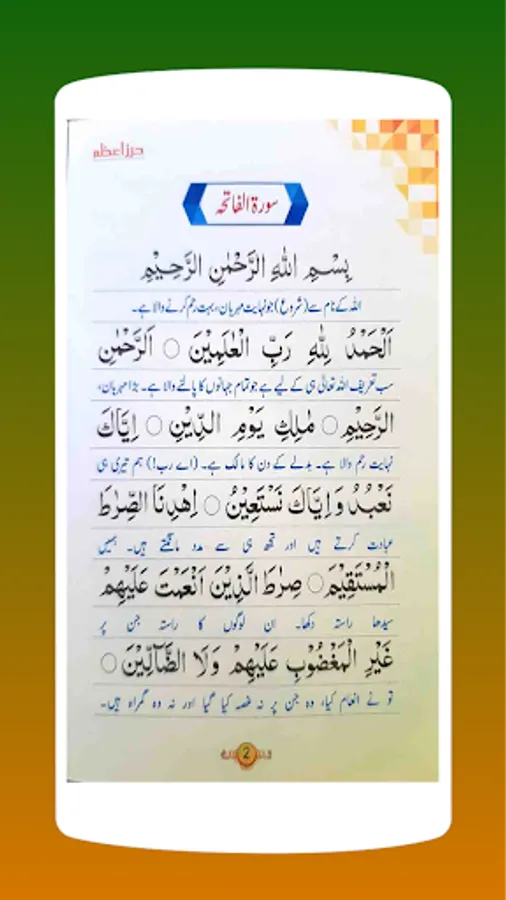 حرز اعظم
سورۃ الفاتحہ
بِسْمِ اللهِ الرَّحْمٰنِ الرَّحِيْمِ
اللہ کے نام سے (شروع) جو نہایت مہربان، بہت رحم کرنے والا ہے۔
اَلْحَمْدُ لِلّٰهِ رَبِّ الْعٰلَمِيْنَ ۝ اَلرَّحْمٰنِ
سب تعریف اللہ تعالیٰ ہی کے لیے ہے جو تمام جہانوں کا پالنے والا ہے۔ بڑا مہربان،
الرَّحِيْمِ ۝ مٰلِكِ يَوْمِ الدِّيْنِ ۝ اِيَّاكَ
نہایت رحم والا ہے۔ بدلے کے دن کا مالک ہے۔ (اے رب!) ہم تیری ہی
نَعْبُدُ وَاِيَّاكَ نَسْتَعِيْنُ ۝ اِهْدِنَا الصِّرَاطَ
عبادت کرتے ہیں اور تجھ ہی سے مدد مانگتے ہیں۔ ہمیں
الْمُسْتَقِيْمَ ۝ صِرَاطَ الَّذِيْنَ اَنْعَمْتَ عَلَيْهِمْ
سیدھا راستہ دکھا۔ ان لوگوں کا راستہ جن پر
غَيْرِ الْمَغْضُوْبِ عَلَيْهِمْ وَلَا الضَّآلِّيْنَ ۝
تو نے انعام کیا، وہ جن پر نہ غصہ کیا گیا اور نہ وہ گمراہ ہیں۔
2